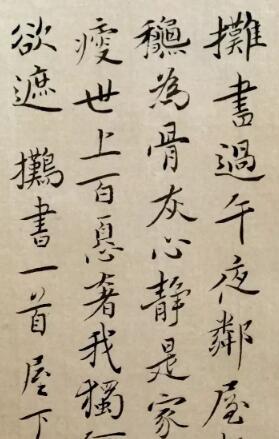 攤書過午夜鄰屋
龝為骨灰心静是家
瘦世上百息著我獨
欲遮 攤書一首屋下